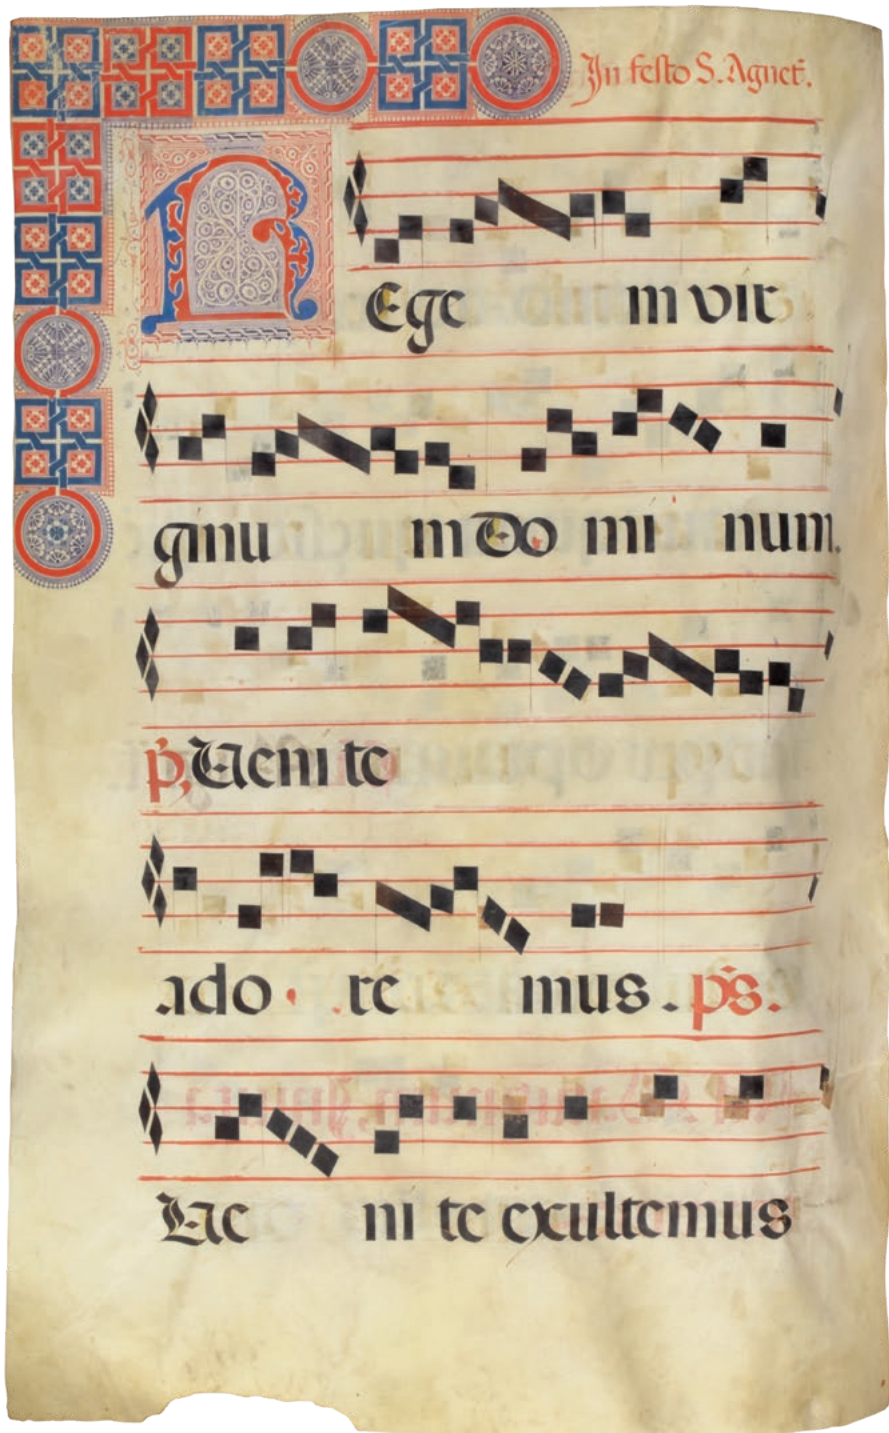 In festo S. Agnet̄.
REge m vir
ginu m Do mi num.
p̄, Veni te
ado. re mus. p̄s.
Ve ni te exultemus